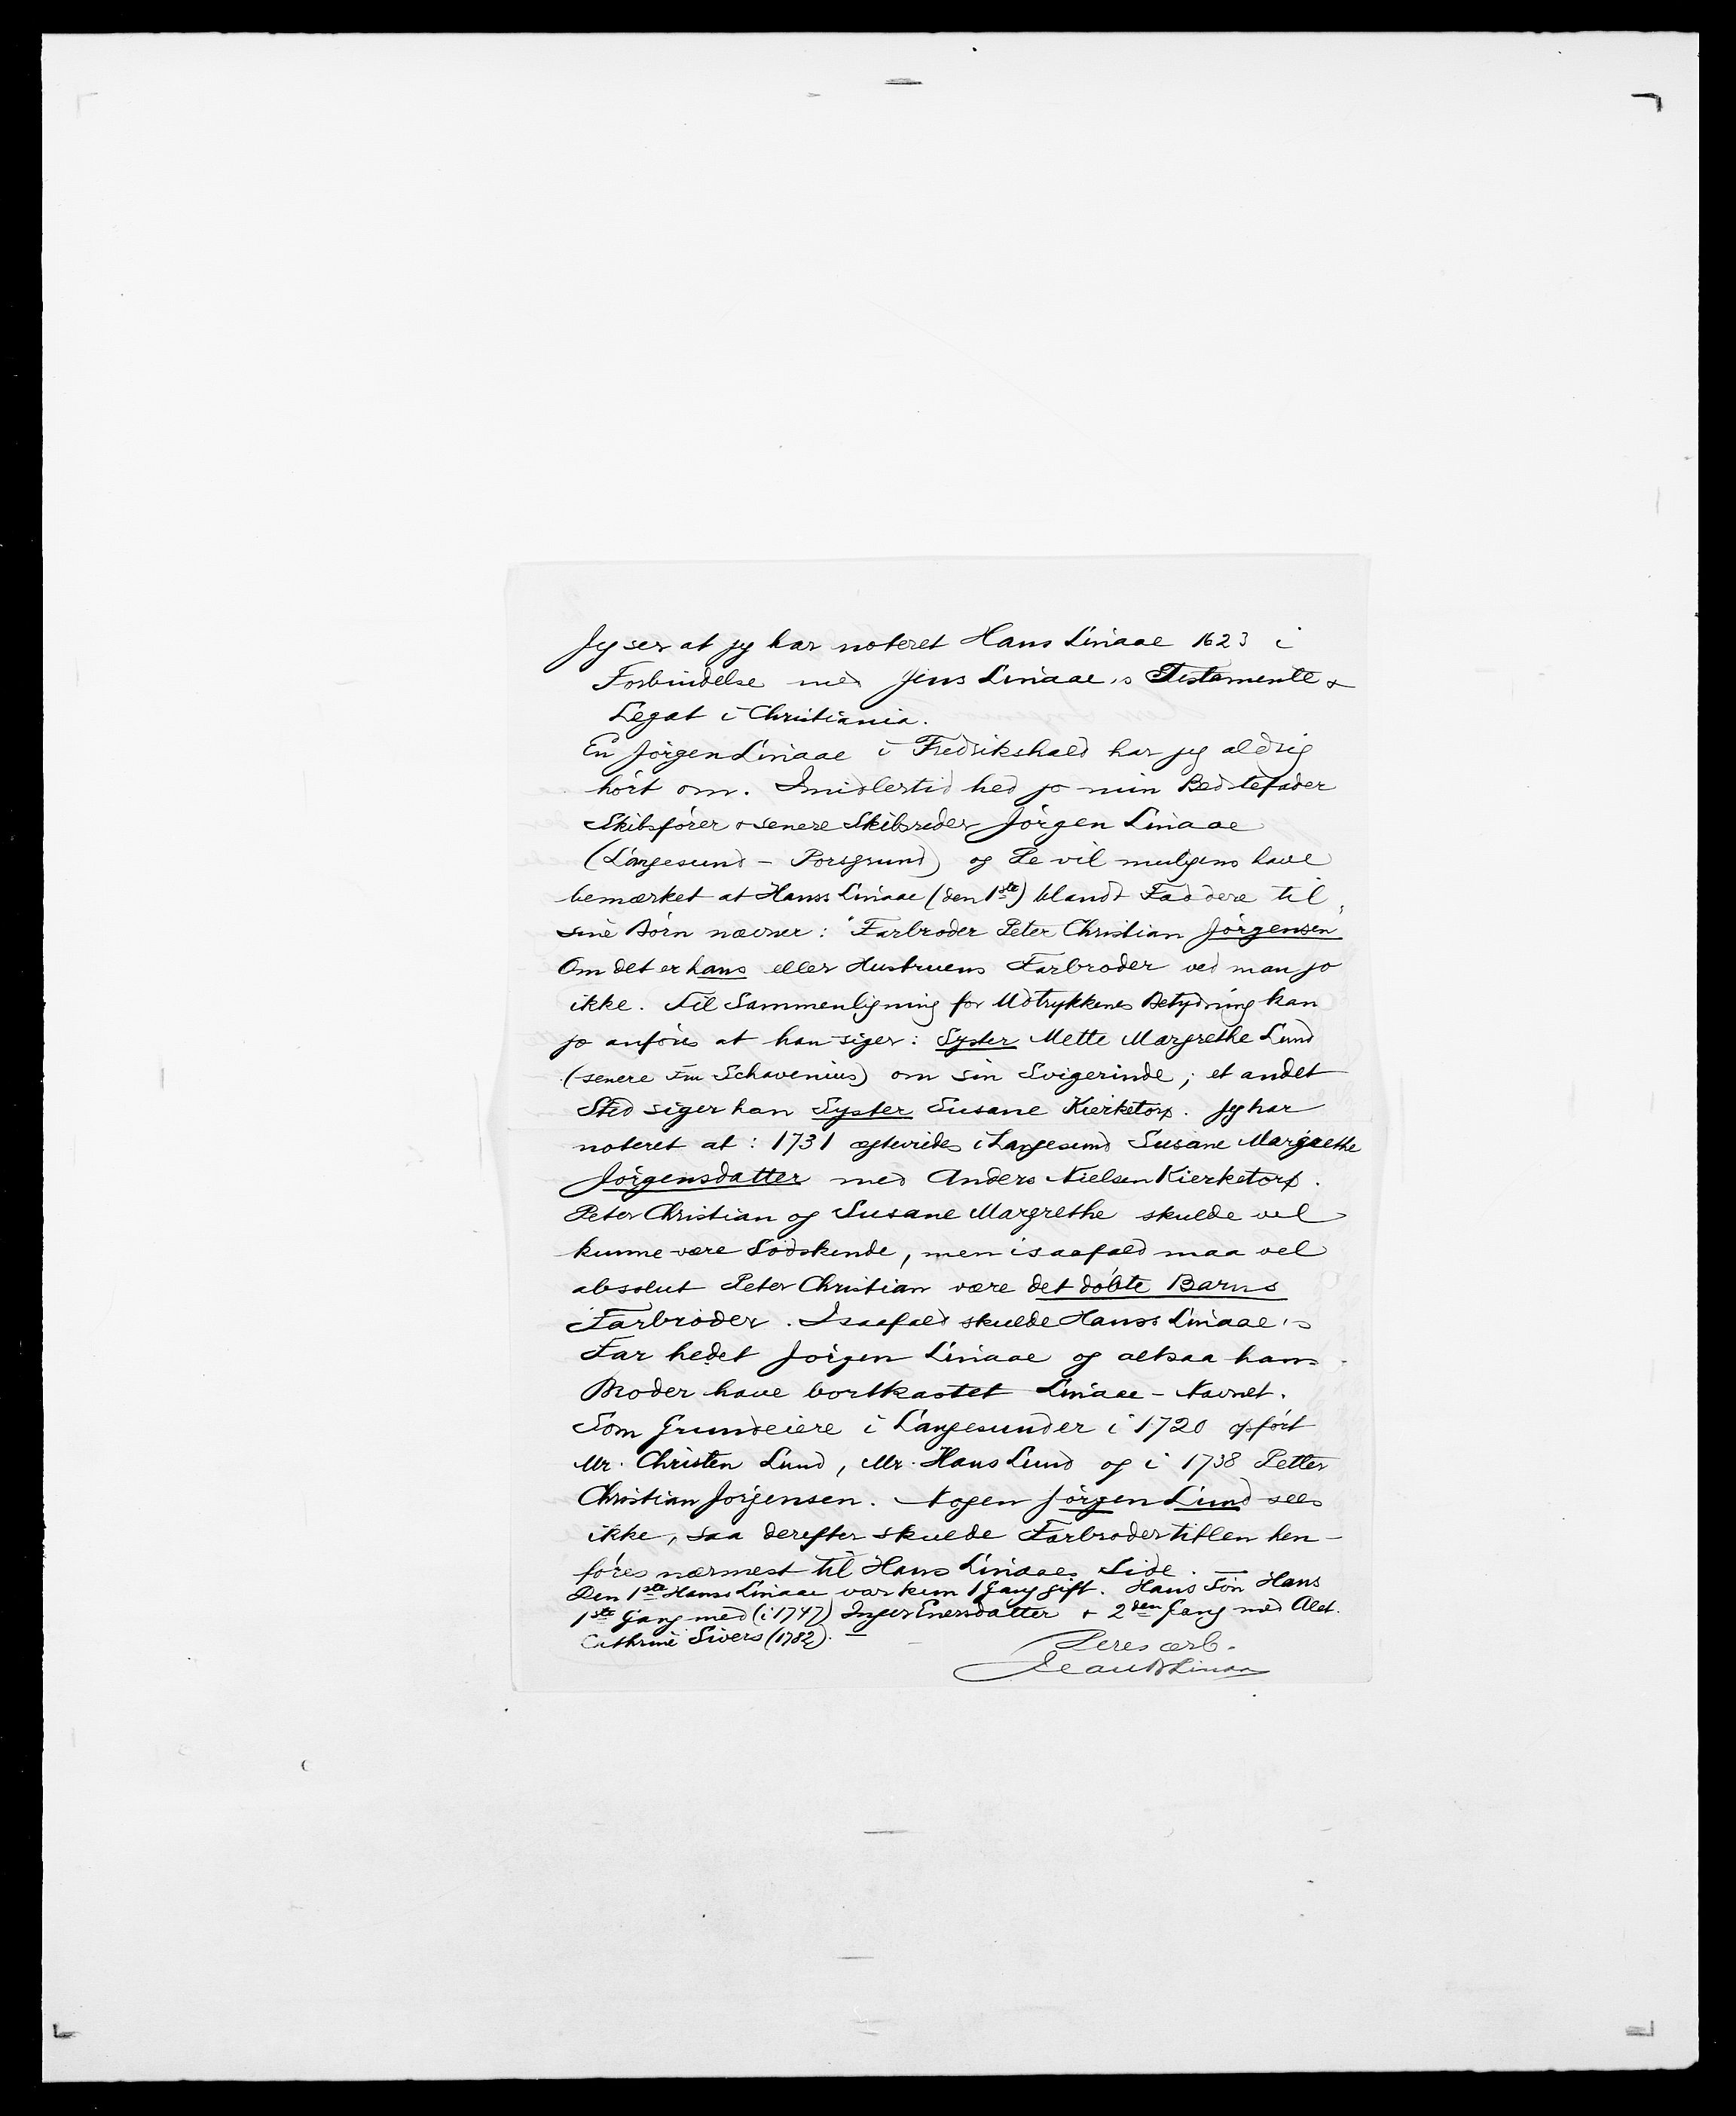 Jeg ser at jeg har noteret Hans Linaae 1623 i
Forbindelse med Jens Linaae's Testamente &
Legat i Christiania.
En Jörgen Linaae i Fredrikshald har jeg aldrig
hört om. Imidlertid hed jo min Bedstefader
Skibsförer & senere Skibsreder Jörgen Linaae
(Langesund - Porsgrund) og De vil muligens have
bemærket at Hanss Linaae (den 1ste) blandt Faddere til
sine Börn nævner: "Farbroder Peter Christian Jörgensen"
Om det er hans eller Hustruens Farbroder ved man jo
ikke. Til Sammenligning for Udtrykkenes Betydning kan
jo anföres at han siger: Syster Mette Margrethe Lund
(senere Fru Schavenius) om sin Svigerinde; et andet
Sted siger han Syster Susane Kierketorp. Jeg har
noteret at: 1731 ægtevides i Langesund Susane Margrethe
Jörgensdatter med Anders Nielsen Kierketorp.
Peter Christian og Susane Margrethe skulde vel
kunne være Södskende, men isaafald maa vel
absolut Peter Christian være det döbte Barns
Farbroder. Isaafald skulde Hanss Linaae's
Far hedet Jörgen Linaae og altsaa hans
Broder have bortkastet Linaae-Navnet.
Som Grundeiere i Langesund er i 1720 opfört
Mr. Christen Lund, Mr. Hans Lund og i 1738 Petter
Christian Jörgensen. Nogen Jörgen Lund sees
ikke, saa derefter skulde Farbrodertitlen hen-
föres nærmest til Hans Linaaes Side. —
Den 1ste Hanss Linaae var kun 1 Gang gift. Hans Sön Hans
1ste Gang med (i 1747) Inger Enersdatter & 2den Gang med Alet.
Cathrine Sivers (1782). —
Deres ærb.
Jean B Linaae